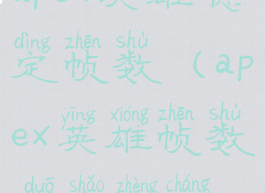 dìng zhēn shù
定帧数（ap
yīng xióng zhēn shù
ex英雄帧数
duō shǎo zhèng cháng